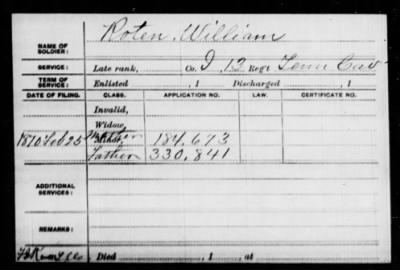 Roten William
NAME OF SOLDIER:
SERVICE: Late rank, Co. I, 13 Regt Tenn Cav
TERM OF SERVICE: Enlisted , 1 Discharged , 1
DATE OF FILING. CLASS. APPLICATION NO. LAW. CERTIFICATE NO.
Invalid,
Widow,
1870 Feb 25 Mother Minor, 184,673
Father 330,841
ADDITIONAL SERVICES:
REMARKS:
Died , 1 , at